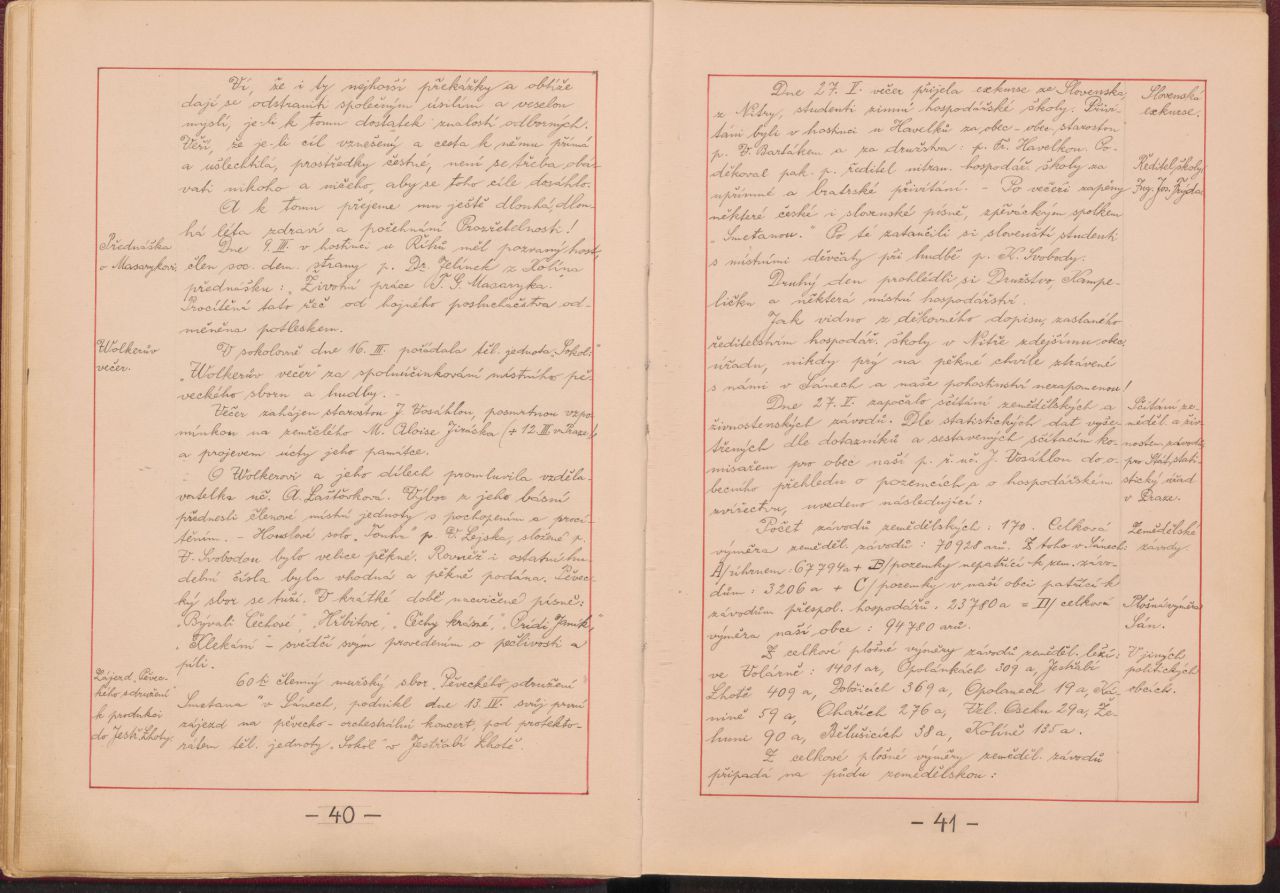 Ví, že i ty nejhorší překážky a obtíže
dají se odstraniti společným úsilím a veselou
myslí, je-li k tomu dostatek znalostí odborných.
Věří, že je-li cíl vznešený a cesta k němu přímá
a ušlechtilá, prostředky čestné, není se třeba obá-
vati nikoho a ničeho, aby se toho cíle dosáhlo.
A k tomu přejeme mu ještě dlouhá, dlou-
há léta zdraví a požehnání Prozřetelnosti!
Přednáška
o Masarykovi.
Dne 9. III. v hostinci u Říhů měl pozvaný host,
člen soc. dem. strany p. Dr. Jelínek z Kolína
přednášku: „Životní práce T. G. Masaryka.“
Procítění tato řeč od hojného posluchačstva od-
měněna potleskem.
Wolkerův
večer.
V sokolovně dne 16. III. pořádala těl. jednota „Sokol:“
„Wolkerův večer“ za spoluúčinkování místního pě-
veckého sboru a hudby. -
Večer zahájen starostou J. Vosáhlou, posmrtnou vzpo-
mínkou na zemřelého M. Aloise Jiráska /+ 12. III. v Praze/,
a projevem úcty jeho památce.
O Wolkerovi a jeho dílech promluvila vzděla-
vatelka uč. A. Lašťovková. Výbor z jeho básní
přednesli členové místní jednoty s pochopením a procí-
těním. - Houslové solo „Touha“ p. V. Lejska, složené p.
V. Svobodou bylo velice pěkné. Rovněž i ostatní hu-
dební čísla byla vhodná a pěkně podána. Pěvec-
ký sbor se tuží. V krátké době nacvičené písně:
„Bývali Čechové“, Hřbitove, „Čechy krásné“, „Přídi Janík“,
„Klekání“ - svědčí svým provedením o pečlivosti a
píli.
Zájezd „Pěvec-
kého sdružení
k produkci
do Jestř. Lhoty.
60ti členný mužský sbor „Pěveckého sdružení
Smetana“ v Sánech, podnikl dne 13. IV. svůj první
zájezd na pěvecko-orchestrální koncert, pod protekto-
rátem těl. jednoty „Sokol“ v Jestřabí Lhotě.
- 40 -
Dne 27. V. večer přijela exkurse ze Slovenska,
z Nitry, studenti zimní hospodářské školy. Přiví-
táni byli v hostinci u Havelků za obec - obec. starostou
p. V. Bartákem a za družstva: p. Fr. Havelkou. Po-
děkoval pak p. ředitel nitran. hospodář. školy za
upřímné a bratrské přivítání. - Po večeři zapěny
některé české i slovenské písně, zpěváckým spolkem
„Smetanou.“ Po té zatančili si slovenští studenti
s místními děvčaty při hudbě p. K. Svobody.
Slovenská
exkurse.
Ředitel školy
Ing. Jos. Frýda.
Druhý den prohlédli si Družstvo, Kampe-
ličku a některá místní hospodářství.
Jak vidno z děkovného dopisu, zaslaného
ředitelstvím hospodář. školy v Nitře zdejšímu obec.
úřadu, nikdy prý na pěkné chvíle ztrávené
s námi v Sánech a naše pohostinství nezapomenou!
Dne 27. V. započalo sčítání zemědělských a
živnostenských závodů. Dle statistických dat vyše-
třených dle dotazníků a sestavených sčítacím ko-
misařem pro obec naší p. ř. uč. J. Vosáhlou do o-
becního přehledu o pozemcích a o hospodářském
zvířectvu, uvedeno následující:
Sčítání ze-
měděl. a živ-
nosten. závodů
pro Stát. stati-
stický úřad
v Praze.
Počet závodů zemědělských: 170. Celková
výměra zeměděl. závodů: 70928 arů. Z toho v Sánech:
A/ úhrnem: 67794a + B/ pozemky nepatřící k zem. závo-
dům: 3206 a + C/ pozemky v naší obci patřící k
závodům přespol. hospodářů. 23780 a = D/ celková
výměra naší obce: 94780 arů.
Zemědělské
závody.
Plošná výměra
Sán.
Z celkové plošné výměry závodů zeměděl. leží:
ve Volárně: 1401 ar, Opolánkách 309 a, Jestřabí
Lhotě 409 a, Dobšicích 369 a, Opolanech 19 a, Ka-
níně 59 a, Ohařích 276 a, Vel. Oseku 29a, Že-
huni 90 a, Bělušicích 38a, Kolíně 155a.
V jiných
politických
obcích.
Z celkové plošné výměry zeměděl. závodů
připadá na půdu zemědělskou:
- 41 -